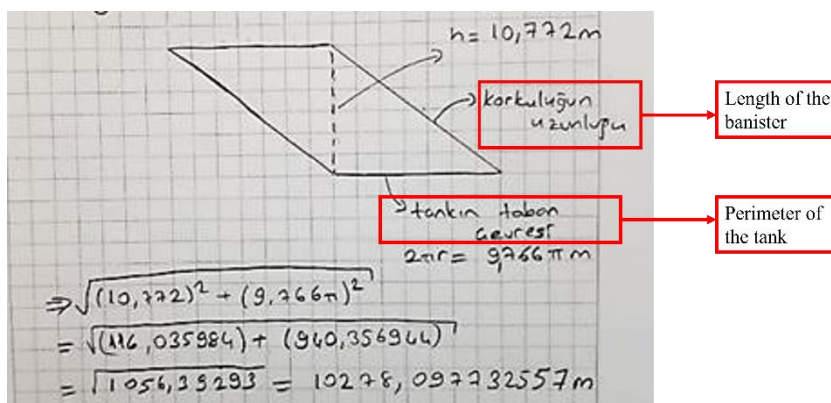 h = 10,772m
korkuluğun
uzunluğu
Length of the
banister
tankın taban
çevresi
Perimeter of
the tank
2πr = 9,766π m
⇒ √(10,772)² + (9,766π)²
= √(116,035984) + (940,356944)
= √1056,39293 = 10278,097732557m